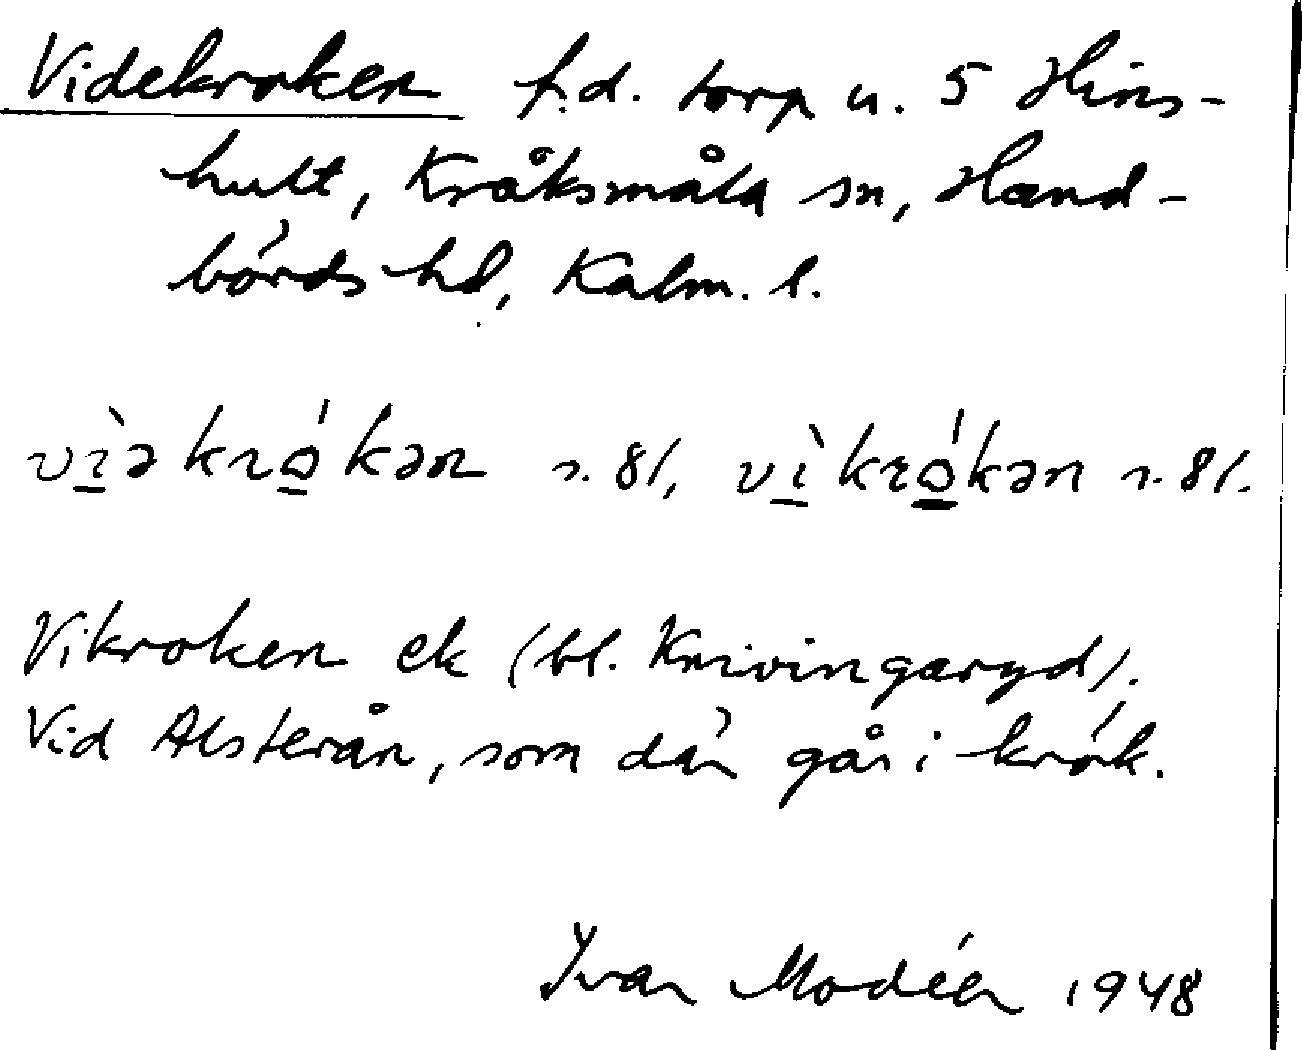 Videkroken f.d. torp u. 5 Hins-
hult, Kråksmåla sn, Hand-
börds hd, Kalm. l.
vì̱əkró̱kən s. 81, vì̱kró̱kən s. 81.
Vikroken ek (bl. Knivingaryd).
Vid Alsterån, som där går i krök.
Ivar Modéer 1948